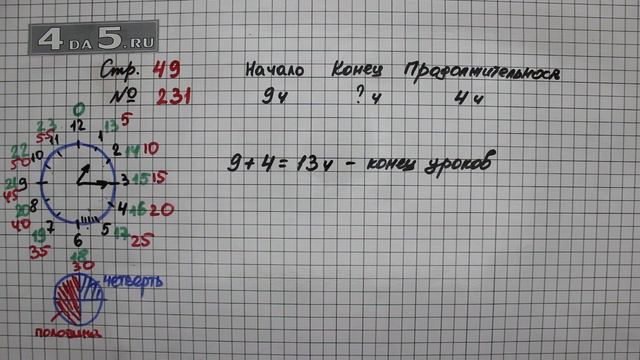 4DA5.RU
Стр. 49
№ 231
Начало Конец Продолжительнось
9ч ? ч 4 ч
9 + 4 = 13 ч - конец уроков
0
12
11 23 55
1 13 5
10 22 50
2 14 10
9 21 45
3 15 15
8 20 40
4 16 20
7 19 35
5 17 25
6
18
30
четверть
половина